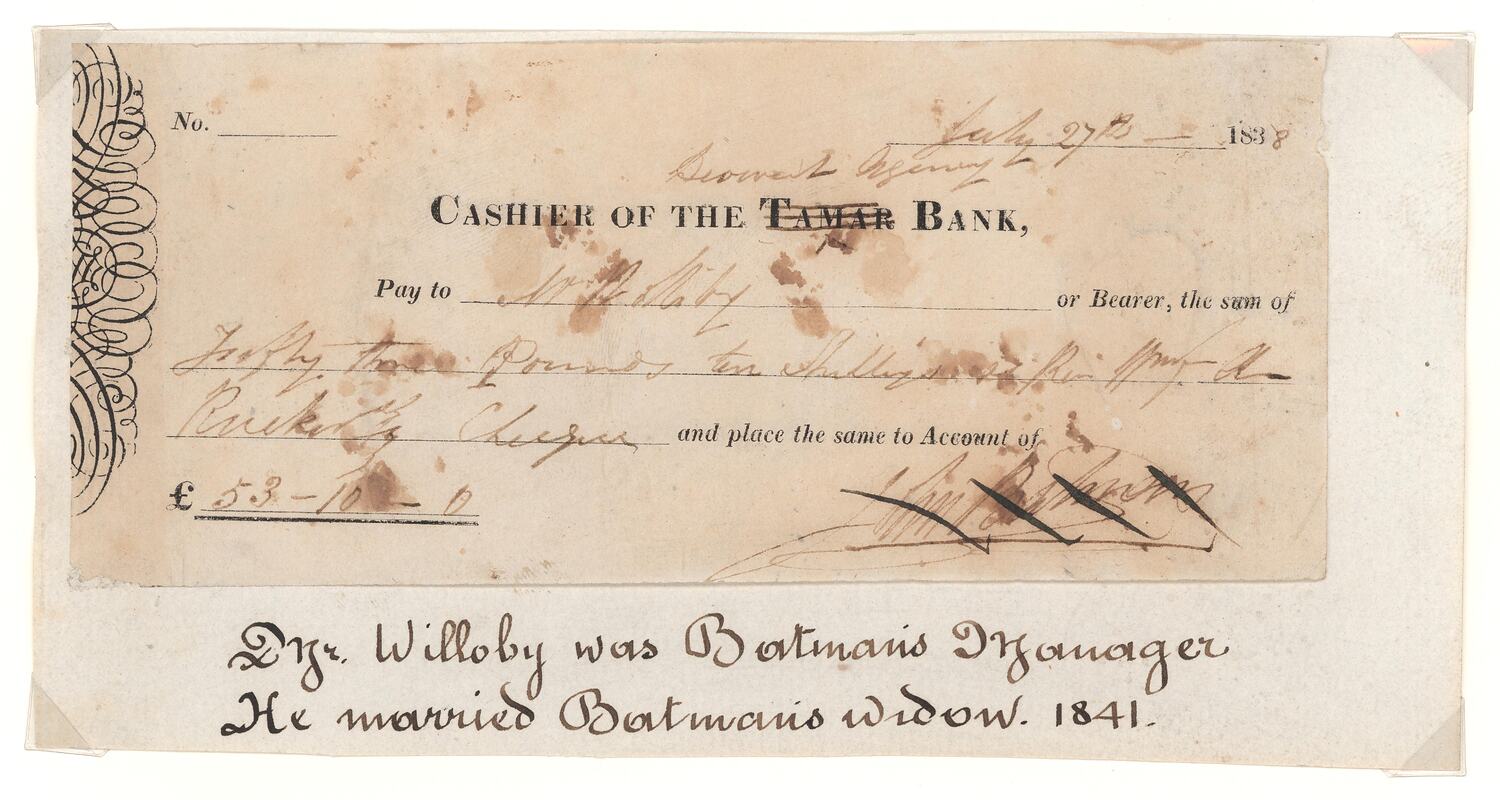 No.
July 27th — 1838
Derwent Agency
CASHIER OF THE TAMAR BANK,
Pay to Mr Willoby or Bearer, the sum of
Fifty three Pounds ten Shillings
Rucker Cheque and place the same to Account of
£ 53 - 10 - 0
John Batman
Mr. Willoby was Batmans Manager
He married Batmans widow. 1841.